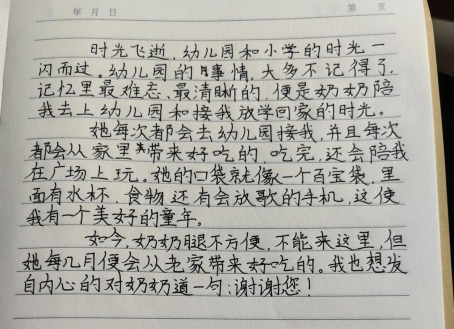 年 月 日 第 页
时光飞逝,幼儿园和小学的时光一
闪而过。幼儿园的事情,大多不记得了,
记忆里最难忘、最清晰的,便是奶奶陪
我去上幼儿园和接我放学回家的时光。
她每次都会去幼儿园接我,并且每次
都会从家里带来好吃的,吃完,还会陪我
在广场上玩。她的口袋就像一个百宝袋,里
面有水杯、食物还有会放歌的手机,这使
我有一个美好的童年。
如今,奶奶腿不方便,不能来这里,但
她每几月便会从老家带来好吃的。我也想发
自内心的对奶奶道一句:谢谢您!
年 月 日